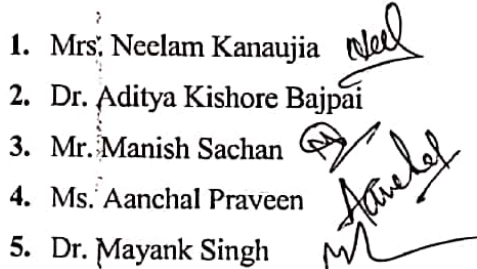 1. Mrs. Neelam Kanaujia Neel
2. Dr. Aditya Kishore Bajpai
3. Mr. Manish Sachan
4. Ms. Aanchal Praveen Aanchal
5. Dr. Mayank Singh